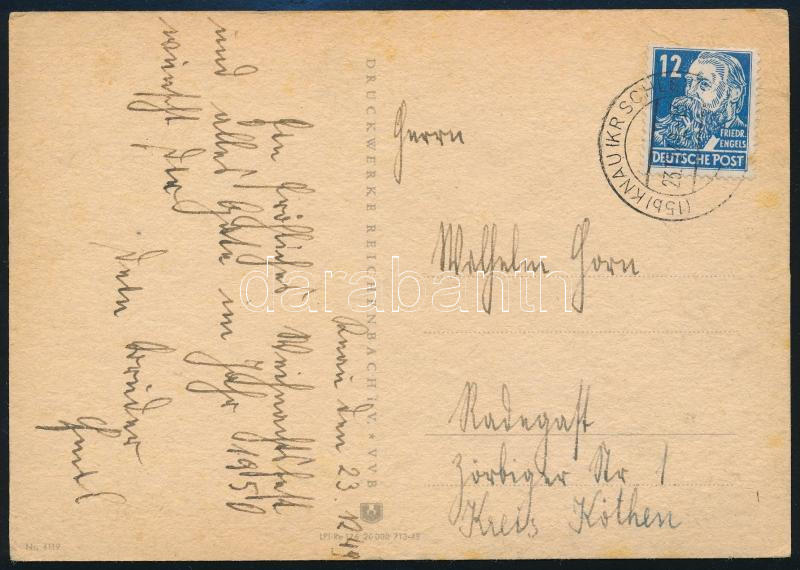 Knau den 23. 12. 49
Ein fröhliches Weihnachtsfest
und alles Gute im Jahr 1950
wünscht Dir
Dein Bruder
DRUCKWERKE REICHENBACH i. V. * VVB
Herrn
Wilhelm Horn
Radegast
Zörbiger Str. 1
Kreis Köthen
12
FRIEDR.
ENGELS
DEUTSCHE POST
(15b) KNAU (KR SCHLEIZ
23.
Nr. 4119
darabanth